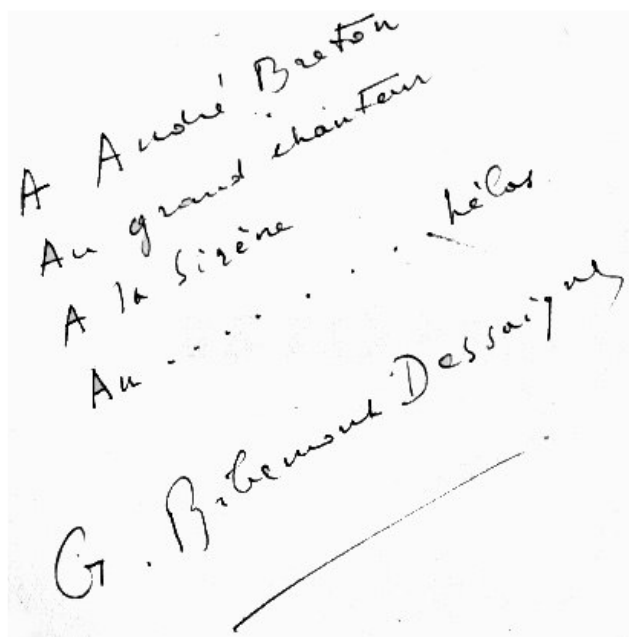 A André Breton
Au grand chanteur
A la Sirène
Au . . . . . . . hélas
G. Ribemont Dessaignes